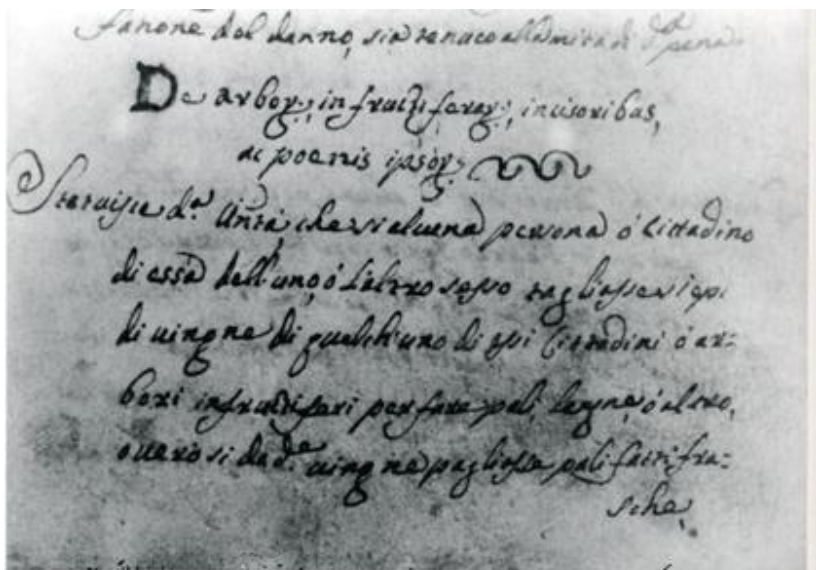 fanone del danno, sia tenuto alla mità di d.ª pena
De arbor; infructiferor; incisoribus,
ac poenis ipsor;
Statuisce d.ª Unta, che si alcuna persona ó Cittadino
di essa dell'uno, ó l'altro sesso tagliasse siepi
di uingne di qualch'uno di essi Cittadini ó ar:
bori infruttiferi per fare pali, legne, ó altro,
ouero si da d.ᵉ uingne pagliasse pali fatti fra:
sche,